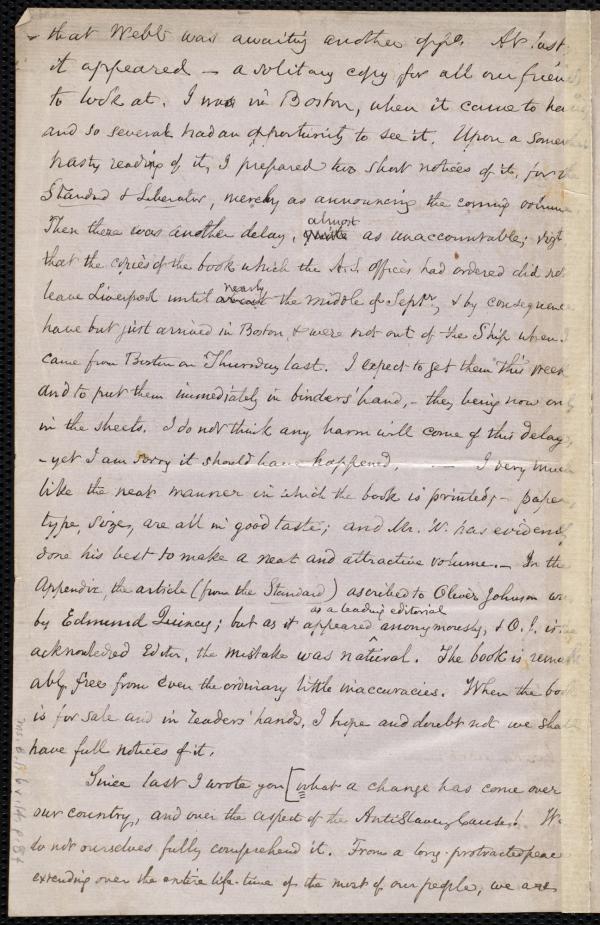 that Webb was awaiting another oppy. At last
it appeared — a solitary copy for all our friends
to look at. I was in Boston, when it came to hand
and so several had an opportunity to see it. Upon a somewhat
hasty reading of it, I prepared two short notices of it, for the
Standard & Liberator, merely as announcing the coming volume.
Then there was another delay, quite almost as unaccountable; viz.
that the copies of the book which the A.S. Offices had ordered did not
leave Liverpool until nearly the middle of Septr, & by consequence
have but just arrived in Boston, & were not out of the Ship when I
came from Boston on Thursday last. I expect to get them this week
and to put them immediately in binders' hand, — they being now only
in the sheets. I do not think any harm will come of this delay,
— yet I am sorry it should have happened. — I very much
like the neat manner in which the book is printed; — paper,
type, size, are all in good taste; and Mr. W. has evidently
done his best to make a neat and attractive volume. — In the
Appendix, the article (from the Standard) ascribed to Oliver Johnson was
by Edmund Quincy; but as it appeared anonymously, as a leading editorial & O.J. is the
acknowledged Editor, the mistake was natural. The book is remark-
ably free from even the ordinary little inaccuracies. When the book
is for sale and in readers' hands, I hope and doubt not we shall
have full notices of it.
Since last I wrote you [what a change has come over
our country, and over the aspect of the AntiSlavery Cause! We
do not ourselves fully comprehend it. From a long-protracted peace
extending over the entire life-time of the most of our people, we are